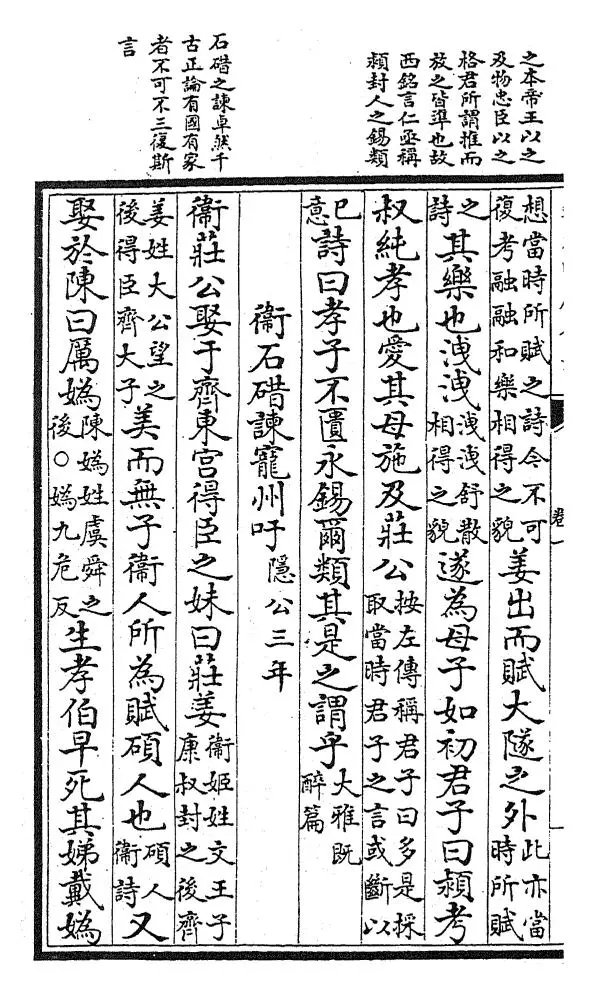 之本帝王以之
及物忠臣以之
格君所謂推而
放之皆準也故
西銘言仁亟稱
頴封人之錫類
石碏之諫卓然千
古正論有國有家
者不可不三復斯
言
想當時所賦之詩今不可復考融融和樂相得之貌姜出而賦大隧之外此亦當時所賦
之詩其樂也洩洩洩洩舒散相得之貌遂為母子如初君子曰頴考
叔純孝也愛其母施及莊公按左傳稱君子曰多是採取當時君子之言或斷以
已意詩曰孝子不匱永錫爾類其是之謂乎大雅既醉篇
衞石碏諫寵州吁隱公三年
衞莊公娶于齊東宮得臣之妹曰莊姜衞姬姓文王子康叔封之後齊
姜姓大公望之後得臣齊大子美而無子衞人所為賦碩人也碩人衞詩又
娶於陳曰厲媯陳媯姓虞舜之後○媯九危反生孝伯早死其娣戴媯